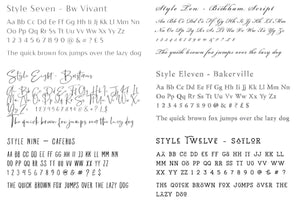 Style Seven - Bw Vivant
Aa Bb Cc Dd Ee Ff Gg Hh Ii Jj Kk Ll Mm
Nn Oo Pp Qq Rr Ss Tt Uu Vv Ww Xx Yy Zz
1 2 3 4 5 6 7 8 9 0 @ & # ( ) ! ?
The quick brown fox jumps over the lazy dog
Style Eight - Bastems
Aa Bb Cc Dd Ee Ff Gg Hh Ii Jj Kk Ll Mm
Nn Oo Pp Qq Rr Ss Tt Uu Vv Ww Xx Yy Zz
1 2 3 4 5 6 7 8 9 0
The quick brown fox jumps over the lazy dog
STYLE NINE - CAFERUS
AA BB CC DD EE FF GG HH II JJ KK LL MM
NN OO PP QQ RR SS TT UU VV WW XX YY ZZ
1 2 3 4 5 6 7 8 9 0 @ & # ( ) ! ?
THE QUICK BROWN FOX JUMPS OVER THE LAZY DOG
Style Ten - Bickham Script
Aa Bb Cc Dd Ee Ff Gg Hh Ii Jj Kk Ll Mm
Nn Oo Pp Qq Rr Ss Tt Uu Vv Ww Xx Yy Zz
1 2 3 4 5 6 7 8 9 0 @ & # ( ) ! ?
The quick brown fox jumps over the lazy dog
Style Eleven - Bakerville
Aa Bb Cc Dd Ee Ff Gg Hh Ii Jj Kk Ll Mm
Nn Oo Pp Qq Rr Ss Tt Uu Vv Ww Xx Yy Zz
1 2 3 4 5 6 7 8 9 0 @ & # ( ) ! ?
The quick brown fox jumps over the lazy dog
STYLE TWELVE - SAILOR
AA BB CC DD EE FF GG HH II JJ KK LL MM
NN OO PP QQ RR SS TT UU VV WW XX YY ZZ
1 2 3 4 5 6 7 8 9 0 @ & # ( ) ! ?
THE QUICK BROWN FOX JUMPS OVER THE LAZY DOG